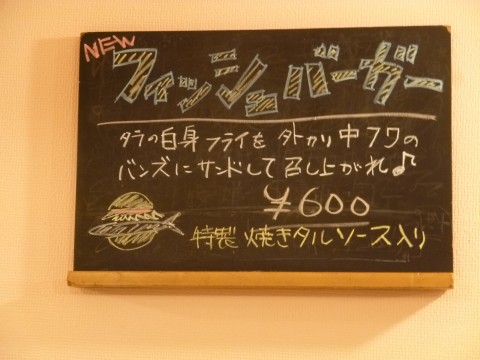 NEW
フィッシュバーガー
タラの白身フライを外カリ中フワの
バンズにサンドして召し上がれ♪
¥600
特製焼きタルソース入り